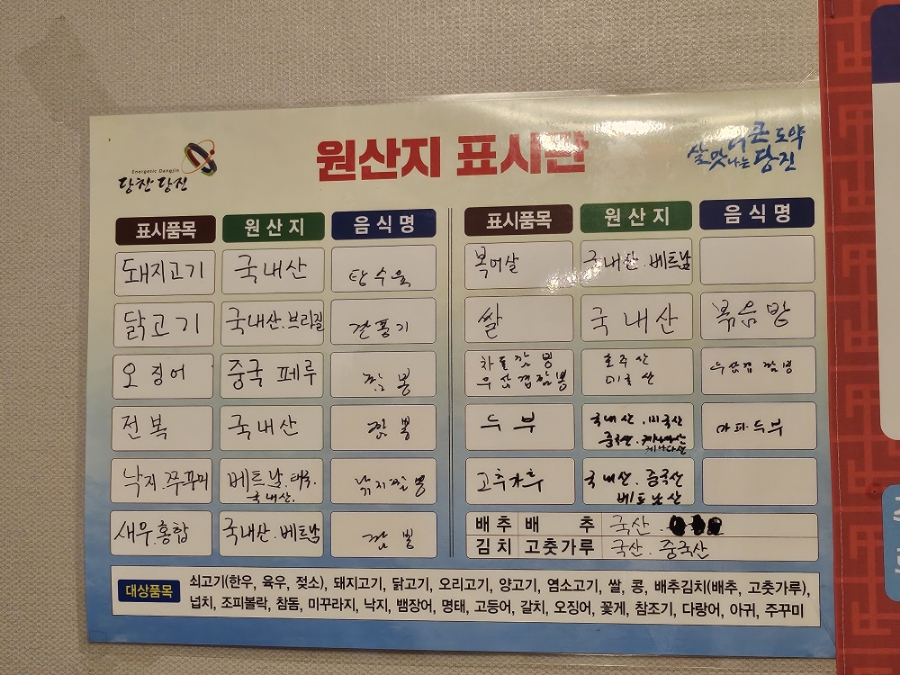 Energenic Dangjin
당찬당진
원산지 표시판
더 큰 도약
살맛나는 당진
표시품목 원산지 음식명
돼지고기 국내산 탕수육
닭고기 국내산.브라질 깐풍기
오징어 중국 페루 짬뽕
전복 국내산 짬뽕
낙지.쭈꾸미 베트남.태국. 국내산. 낙지짬뽕
새우.홍합 국내산.베트남 짬뽕
표시품목 원산지 음식명
복어살 국내산.베트남
쌀 국내산 볶음밥
차돌짬뽕 호주산
우삼겹짬뽕 미국산 우삼겹짬뽕
두부 국내산.미국산 마파두부
중국산.캐나다산
고추가루 국내산.중국산
베트남산
배추 배추 국산.
김치 고춧가루 국산.중국산
대상품목
쇠고기(한우, 육우, 젖소), 돼지고기, 닭고기, 오리고기, 양고기, 염소고기, 쌀, 콩, 배추김치(배추, 고춧가루),
넙치, 조피볼락, 참돔, 미꾸라지, 낙지, 뱀장어, 명태, 고등어, 갈치, 오징어, 꽃게, 참조기, 다랑어, 아귀, 주꾸미